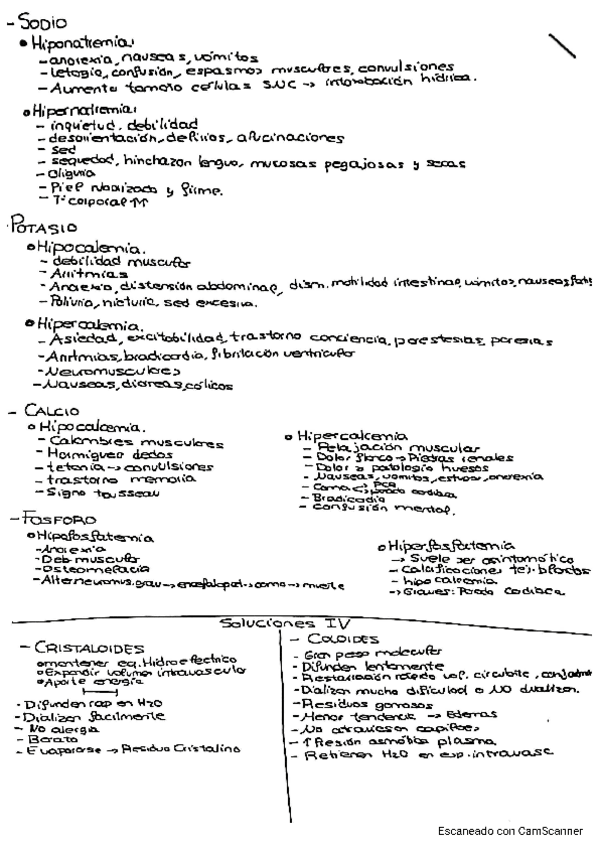 - SODIO
• Hiponatremia:
- anorexia, nauseas, vómitos
- letagia, confusión, espasmos musculares, convulsiones
- Aumento tamaño células SNC → intoxicación hídrica.
• Hipernatremia:
- inquietud, debilidad
- desorientación, delirios, alucinaciones
- Sed
- sequedad, hinchazon lengua, mucosas pegajosas y secas
- Oliguria
- Piel ruborizada y firme.
- Tª corporal ↑↑
POTASIO
• Hipocalemia.
- debilidad muscular
- Arritmias
- Anorexia, distensión abdominal, dism. motilidad intestinal, vómitos, nauseas,
- Poliuria, nicturia, sed excesiva.
• Hipercalemia.
- Asiedad, excitabilidad, trastorno conciencia, parestesias, paresias
- Arritmias, bradicardia, fibrilación ventricular
- Neuromusculares
- Nauseas, diareas, cólicos
- CALCIO
• Hipocalcemia.
- Calambres musculares
- Hormigueo dedos
- tetania → convulsiones
- trastorno memoria
- Signo tousseau
• Hipercalcemia
- Relajación muscular
- Dolor flanco → Piedras renales
- Dolor o patología huesos
- Nauseas, vomitos, estreñ, anorexia
- Coma → PCR
→ parada cardiaca
- Bradicadia
- Confusión mental.
- FOSFORO
• Hipofosfatemia
- Anorexia
- Deb muscular
- Osteomalacia
- Alter neuromus. grav → encefalopat → coma → muerte
• Hiperfosfatemia
→ Suele ser asintomático
- Calcificaciones tej. blandos
- hipocalcemia.
→ Graves: Parada Cardiaca
Soluciones IV
- CRISTALOIDES
• mantener eq. Hidroelectrico
• Expandir volumen intravascular
• Aporte energía
- Difunden rap en H2O
- Dializan facilmente
- No alergia
- Barato
- Evaporarse → Residuo Cristalino
- COLOIDES
- Gran peso molecular
- Difunden lentamente
- Restauración rápida vol. circulante,
- Dializan mucha dificultad o NO dializan.
- Residuos gomosos
- Menor tendencia → Edemas
- No atraviesan capilares
- ↑ Presión osmótica plasma.
- Retienen H2O en esp. intravasc
Escaneado con CamScanner